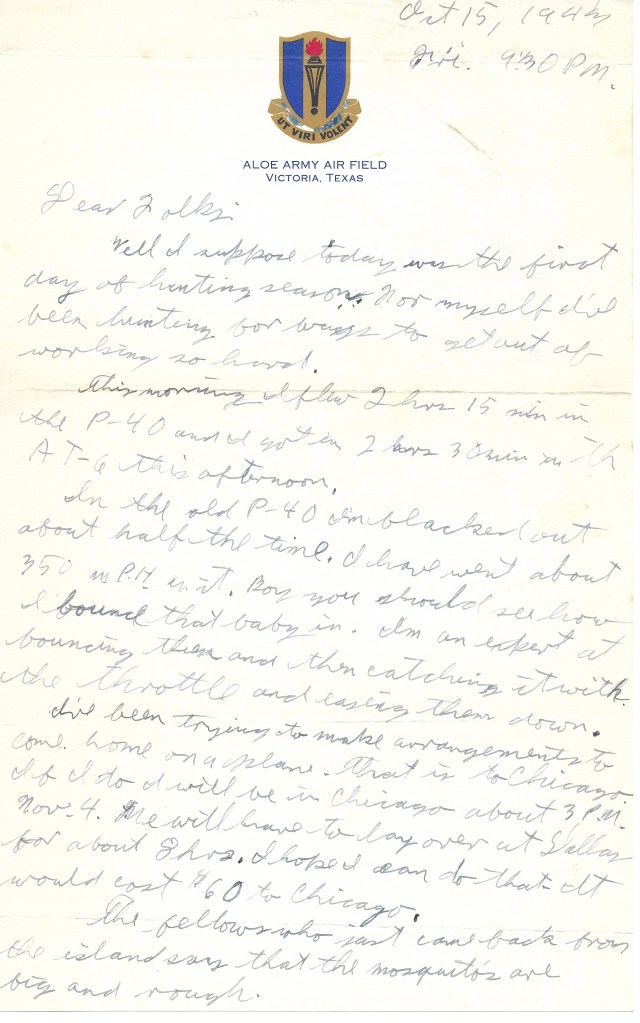 Oct 15, 1943
Fri. 9:30 P.M.
UT VIRI VOLENT
ALOE ARMY AIR FIELD
VICTORIA, TEXAS
Dear Folks:
Well I suppose today was the first
day of hunting season. For myself I've
been hunting for ways to get out of
working so hard.
This morning I flew 2 hrs 15 min in
the P-40 and I got in 2 hrs 30 min in th
AT-6 this afternoon.
In the old P-40 I'm blacked out
about half the time. I have went about
350 m.P.H. in it. Boy you should see how
I bounce that baby in. I'm an expert at
bouncing them and then catching it with
the throttle and easing them down.
I've been trying to make arrangements to
come home on a plane. That is to Chicago.
If I do I will be in Chicago about 3 P.M.
Nov. 4. We will have to lay over at Dallas
for about 8 hrs. I hope I can do that. It
would cost $60 to Chicago.
The fellows who just came back from
the island say that the mosquito's are
big and rough.